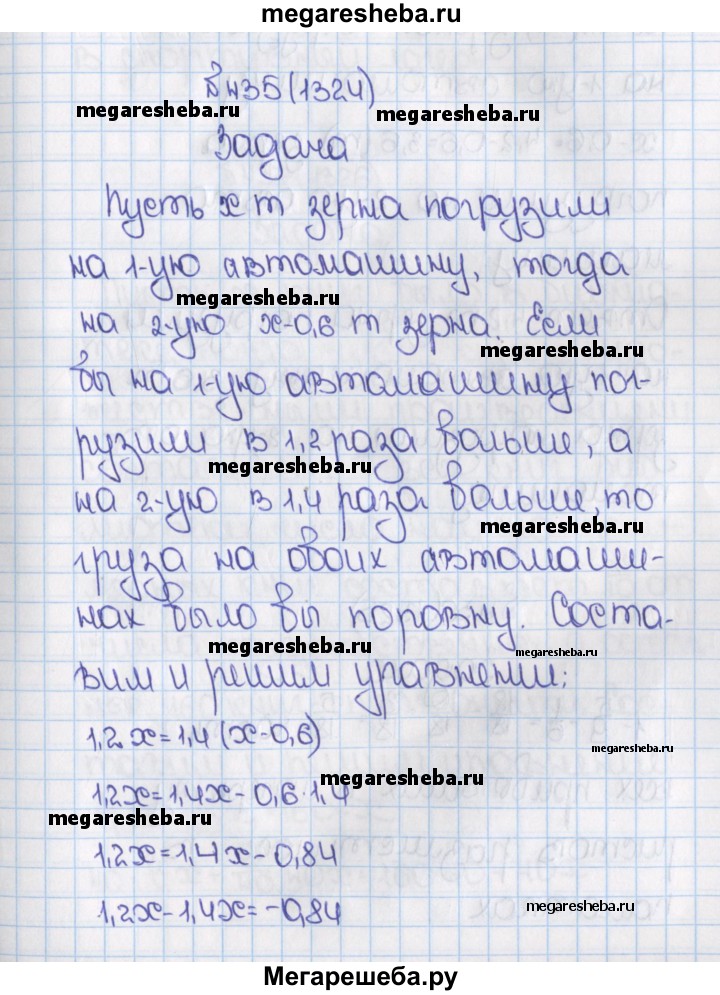 megaresheba.ru
№435(1324)
megaresheba.ru
megaresheba.ru
Задача
Пусть х т зерна погрузили
на 1-ую автомашину, тогда
megaresheba.ru
на 2-ую х-0,6 т зерна. Если
megaresheba.ru
бы на 1-ую автомашину пог-
рузили в 1,2 раза больше, а
megaresheba.ru
на 2-ую в 1,4 раза больше, то
megaresheba.ru
груза на обоих автомаши-
нах было бы поровну. Соста-
megaresheba.ru
megaresheba.ru
вим и решим уравнении:
1,2х=1,4(х-0,6)
megaresheba.ru
megaresheba.ru
1,2х=1,4х-0,6·1,4
megaresheba.ru
1,2х=1,4х-0,84
1,2х-1,4х=-0,84
megaresheba.ru
Мегарешеба.ру